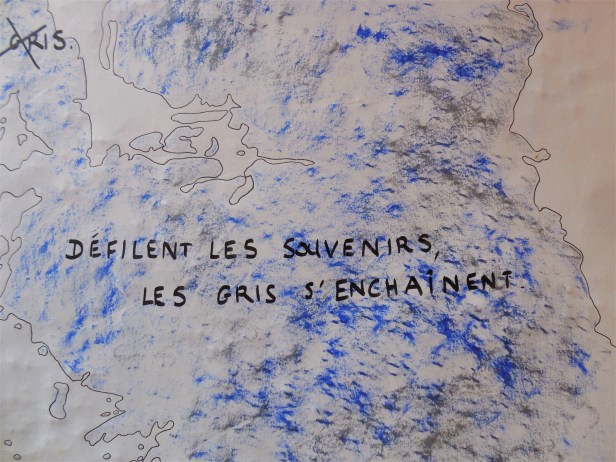 GRIS.
DÉFILENT LES SOUVENIRS,
LES GRIS S'ENCHAÎNENT.